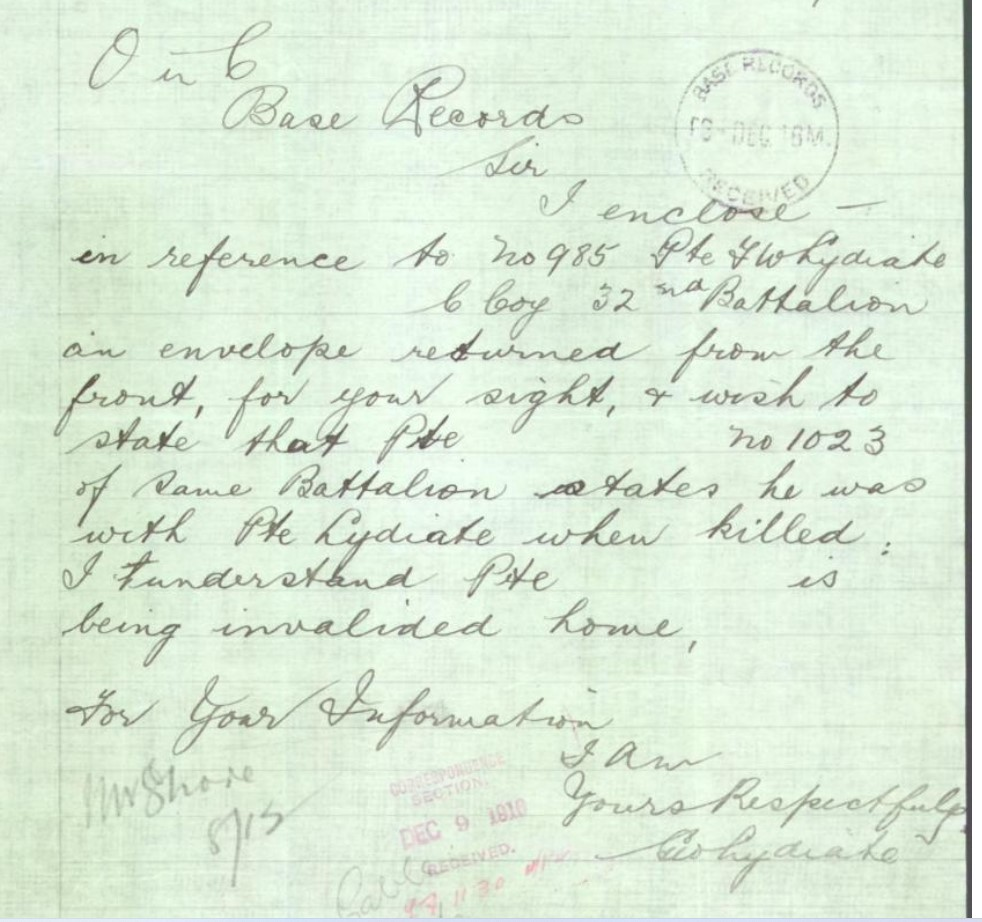 O in C
Base Records
Sir
BASE RECORDS
DEC 16
RECEIVED
I enclose —
in reference to No 985 Pte F W Lydiate
C Coy 32nd Battalion
an envelope returned from the
front, for your sight, & wish to
state that Pte No 1023
of same Battalion states he was
with Pte Lydiate when killed.
I understand Pte is
being invalided home,
For Your Information
I Am
Yours Respectfuly
Geo Lydiate
Mr Shore
8/12
CORRESPONDENCE
SECTION.
DEC 9 1916
RECEIVED.
11 30